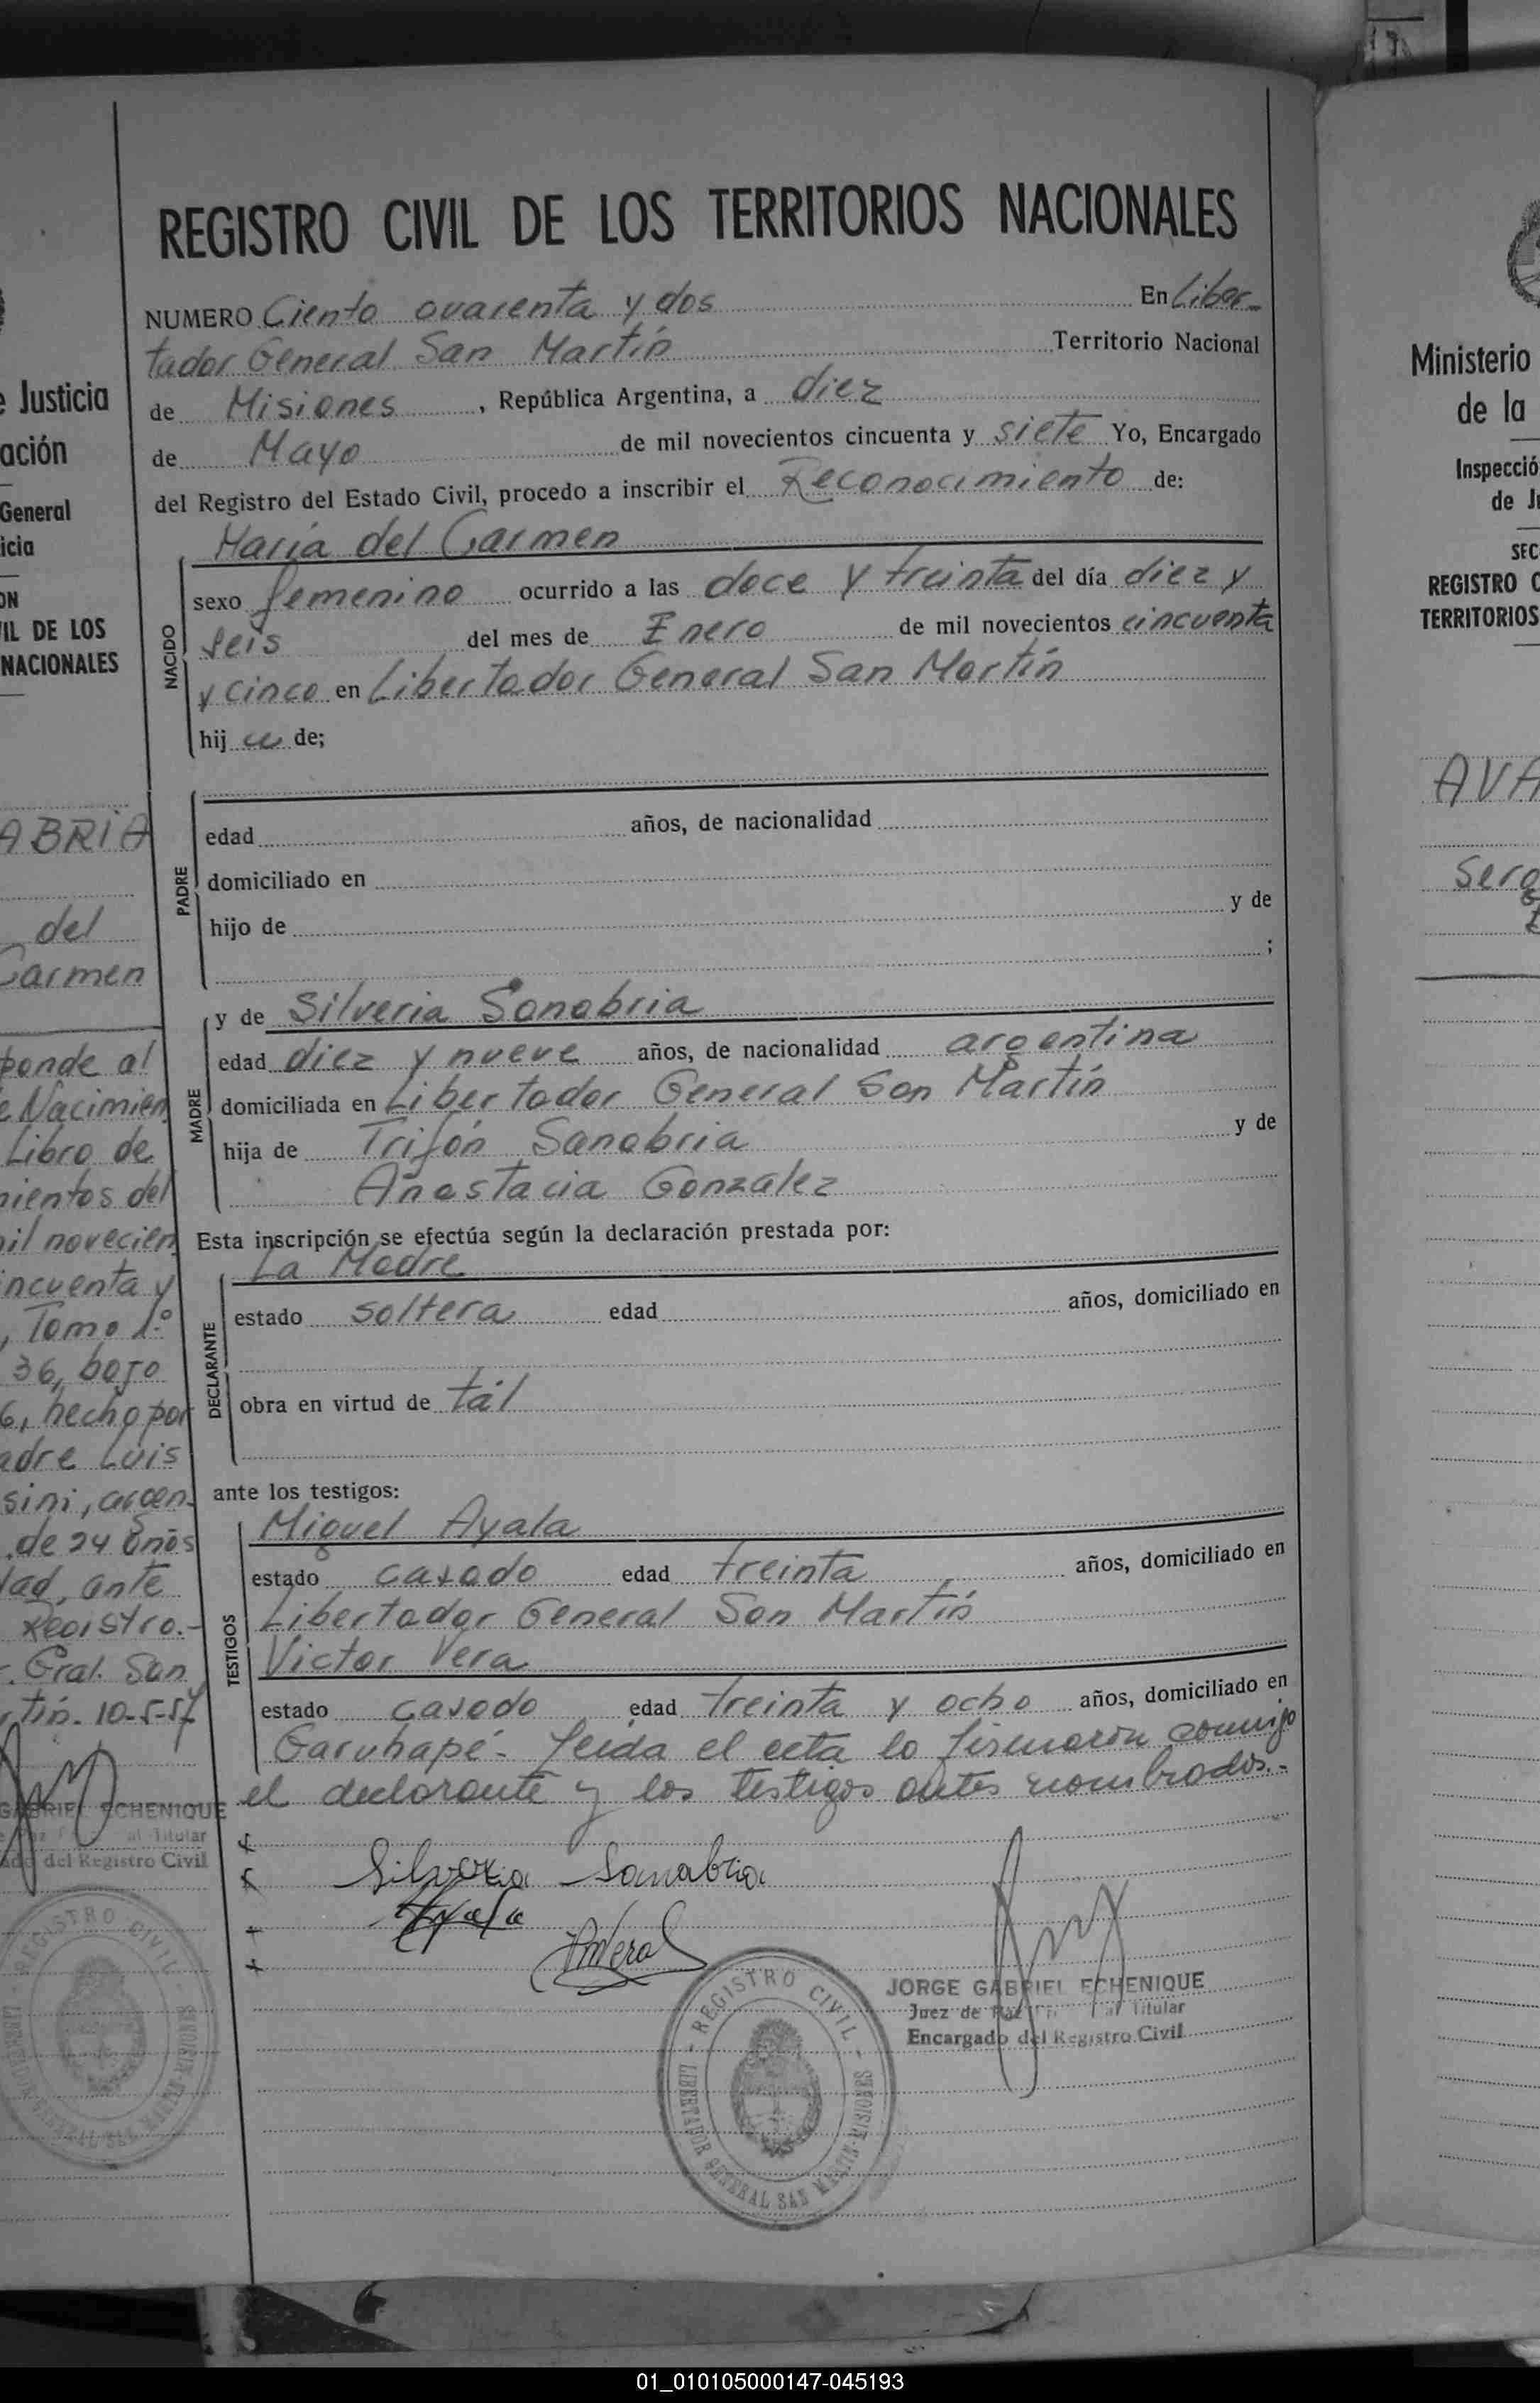 REGISTRO CIVIL DE LOS TERRITORIOS NACIONALES
NUMERO Ciento cuarenta y dos En Liber-
tador General San Martín Territorio Nacional
de Misiones, República Argentina, a diez
de Mayo de mil novecientos cincuenta y siete Yo, Encargado
del Registro del Estado Civil, procedo a inscribir el Reconocimiento de:
María del Carmen
NACIDO
sexo femenino ocurrido a las doce y treinta del día diez y
seis del mes de Enero de mil novecientos cincuenta
y cinco en Libertador General San Martín
hij a de;
PADRE
edad años, de nacionalidad
domiciliado en
hijo de y de
;
MADRE
y de Silveria Sanabria
edad diez y nueve años, de nacionalidad argentina
domiciliada en Libertador General San Martín
hija de Trifón Sanabria y de
Anastacia Gonzalez
Esta inscripción se efectúa según la declaración prestada por:
La Madre
DECLARANTE
estado soltera edad años, domiciliado en
obra en virtud de tál
ante los testigos:
TESTIGOS
Miguel Ayala
estado casado edad treinta años, domiciliado en
Libertador General San Martín
Victor Vera
estado casado edad treinta y ocho años, domiciliado en
Garuhapé - Leída el acta lo firmaron conmigo
el declarante y los testigos antes nombrados.-
Silveria Sanabria
Ayala
JORGE GABRIEL ECHENIQUE
Juez de Paz Titular
Encargado del Registro Civil
- REGISTRO CIVIL -
LIBERTADOR GENERAL SAN MARTIN-MISIONES
e Justicia
ación
General
icia
ON
VIL DE LOS
NACIONALES
ABRIA
del
Carmen
ponde al
e Nacimien
Libro de
mientos del
mil novecien
incuenta y
, Tomo 1.º
36, bajo
6, hecho por
adre Luis
sini, argen-
de 24 años
dad, ante
Registro.-
. Gral. San
rtín. 10-5-57
GABRIEL ECHENIQUE
Titular
del Registro Civil
REGISTRO CIVIL
Ministerio
de la
Inspecció
de Ju
SEC
REGISTRO C
TERRITORIOS
AVA
Serg
01_010105000147-045193